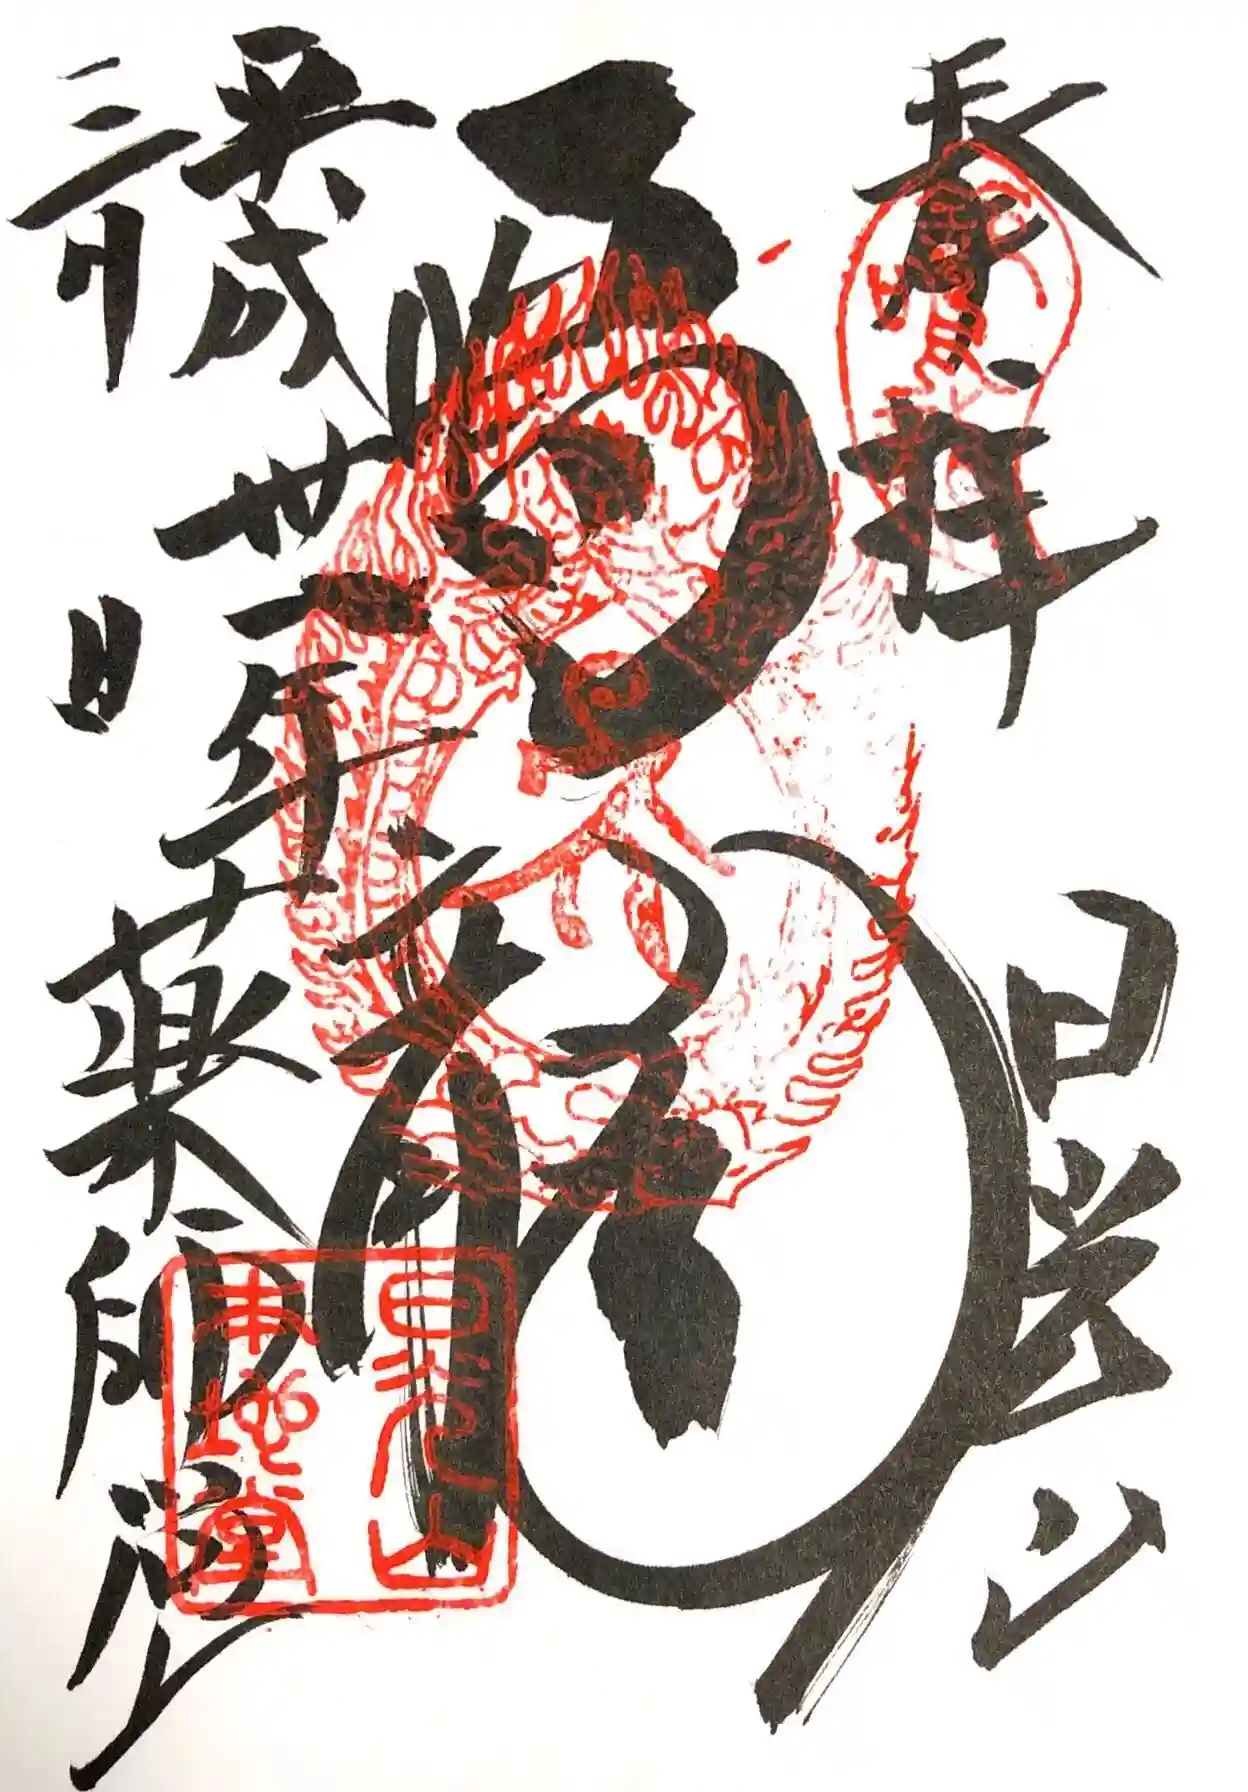 奉拝
日光山
鳴龍
平成卅一年
三月 日
薬師堂
日光山
本地堂